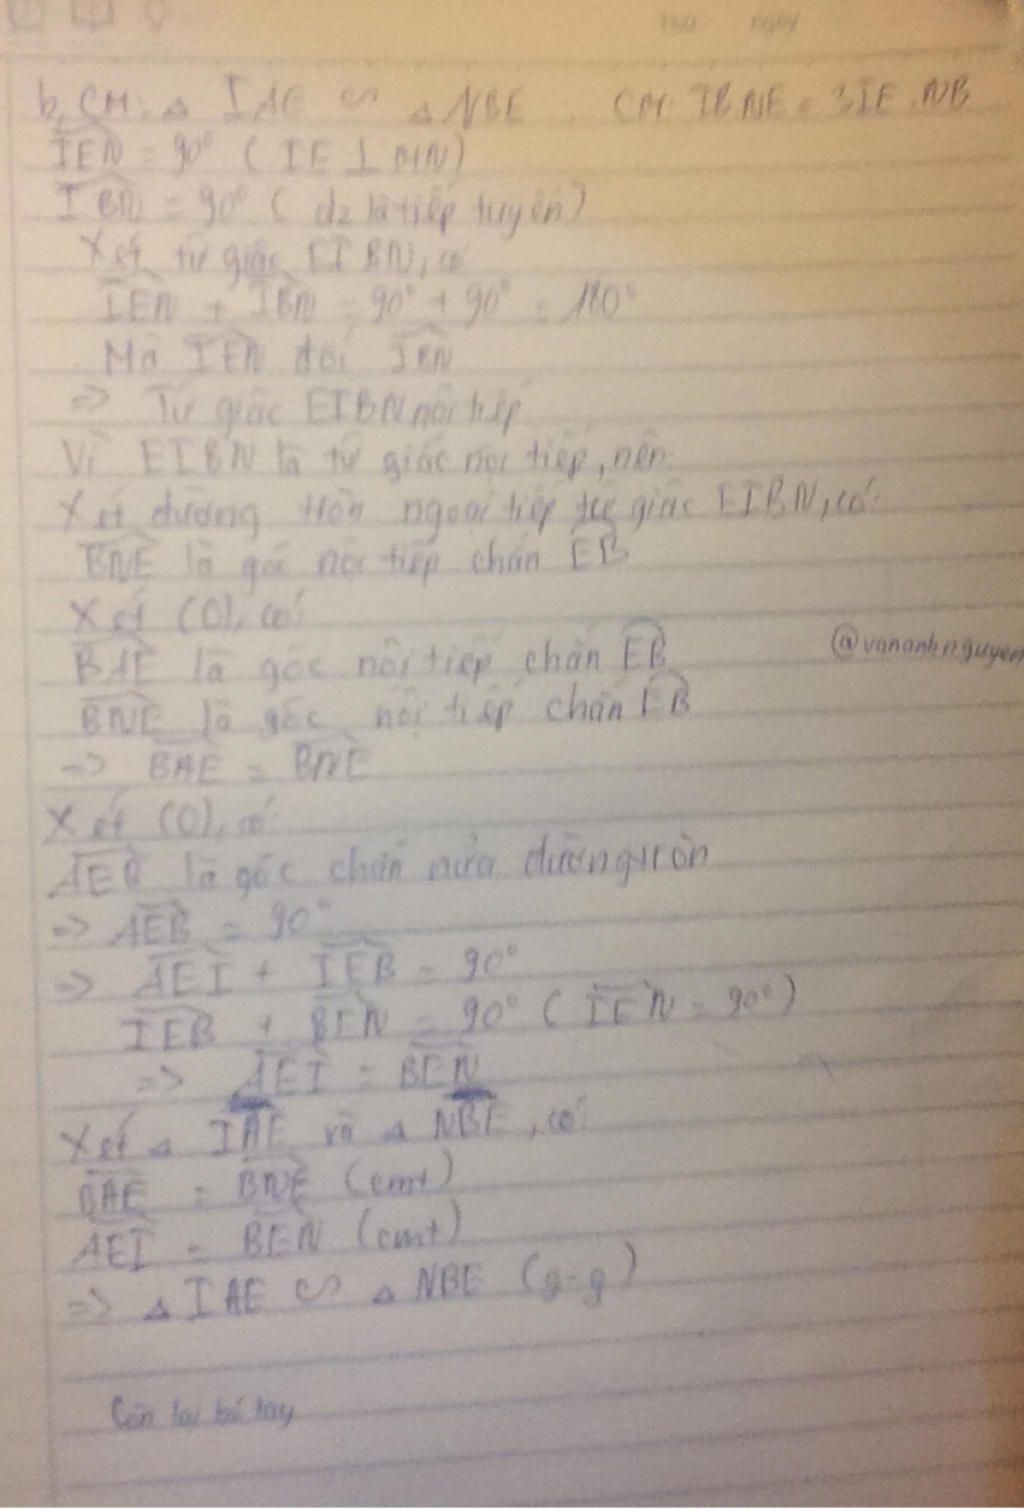 Thứ ngày
b, CM: △ IAE ∽ △ NBE . CM: IB.NE = 3IE.NB
IEN = 90° ( IE ⊥ MN)
IBN = 90° ( d2 là tiếp tuyến)
Xét tứ giác EIBN, có
IEN + IBN = 90° + 90° = 180°
Mà IEN đối IBN
=> Tứ giác EIBN nội tiếp
Vì EIBN là tứ giác nội tiếp, nên
Xét đường tròn ngoại tiếp tứ giác EIBN, có:
BNE là góc nội tiếp chắn EB
Xét (O), có:
BAE là góc nội tiếp chắn EB
@vananhnguyen
BNE là góc nội tiếp chắn EB
=> BAE = BNE
Xét (O), có:
AEB là góc chắn nửa đường tròn
=> AEB = 90°
=> AEI + IEB = 90°
IEB + BEN = 90° ( IEN = 90° )
=> AEI = BEN
Xét △ IAE và △ NBE, có:
BAE = BNE (cmt)
AEI = BEN (cmt)
=> △ IAE ∽ △ NBE (g-g)
Còn lại bó tay